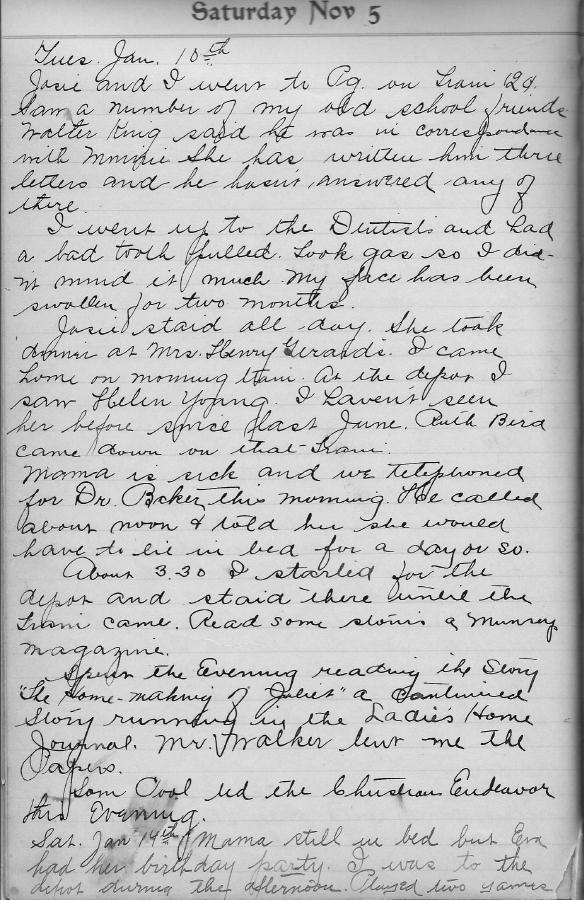 Saturday Nov 5
Tues. Jan. 10th
Josie and I went to Pg. on train 129.
Saw a number of my old school friends
Walter King said he was in correspondence
with Minnie She has written him three
letters and he hasn't answered any of
there.
I went up to the Dentists and had
a bad tooth pulled. Took gas so I did-
n't mind it much. My face has been
swollen for two months.
Josie staid all day. She took
dinner at Mrs. Henry Gerards. I came
home on morning train. At the depot I
saw Helen Young. I haven't seen
her before since last June. Ruth Bird
came down on that train.
Mama is sick and we telephoned
for Dr. Baker this morning. He called
about noon & told her she would
have to lie in bed for a day or so.
About 3.30 I started for the
depot and staid there until the
train came. Read some stories a Munsey
magazine.
Spent the Evening reading the Story
"The Home-making of Juliet" a Continued
Story running in the Ladies Home
Journal. Mr. Walker lent me the
Papers.
Sam Cool led the Christian Endeavor
this Evening.
Sat. Jan 14th Mama still in bed but Eva
had her birthday party. I was to the
depot during the afternoon. Played two games